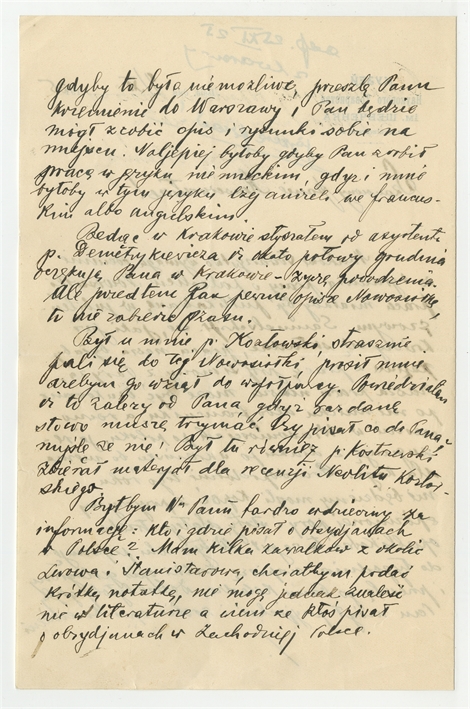 gdyby to było niemożliwe, przeszlę Panu
krzemienie do Warszawy i Pan będzie
mógł zrobić opis i rysunki sobie na
miejscu. Najlepiej byłoby gdyby Pan zrobił
pracę w języku niemieckim, gdyż i mnie
byłoby w tym języku lżej aniżeli we francus-
kim albo angielskim.
Będąc w Krakowie słyszałem od asystenta
p. Demetrykiewicza że około połowy grudnia
oczekują Pana w Krakowie – życzę powodzenia.
Ale przedtem Pan pewnie opisze Nowosiółkę,
to nie zabierze czasu.
Był u mnie p. Kozłowski, strasznie
pali się do tej Nowosiółki, prosił mnie
ażebym go wziął do współpracy. Powiedziałem
że to zależy od Pana, gdyż raz dane
słowo muszę trzymać. Czy pisał co do Pana?
myślę że nie! Był tu również p. Kostrzewski,
zbierał materjał dla recenzji Neolitu Kozłow-
skiego.
Byłbym Panu bardzo wdzięczny za
informację: kto i gdzie pisał o obsydjanach
w Polsce? Mam kilka kawałków z okolic
Lwowa i Stanisławowa, chciałbym podać
krótką notatkę, nie mogę jednak znaleść
nic w literaturze a wiem że ktoś pisał
o obsydjanach w Zachodniej Polsce.